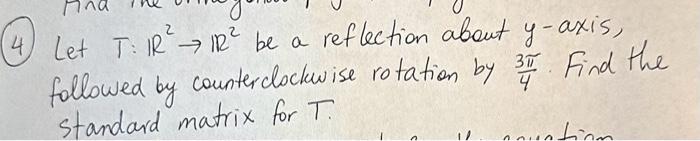 Find the
4 Let T: ℝ² → ℝ² be a reflection about y-axis,
followed by counterclockwise rotation by 3π/4. Find the
standard matrix for T.